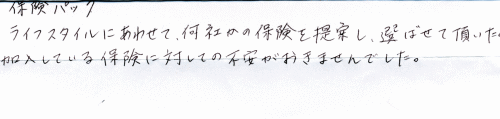 保険パック
ライフスタイルにあわせて、何社かの保険を提案し、選ばせて頂いた。
加入している保険に対しての不安がおきませんでした。